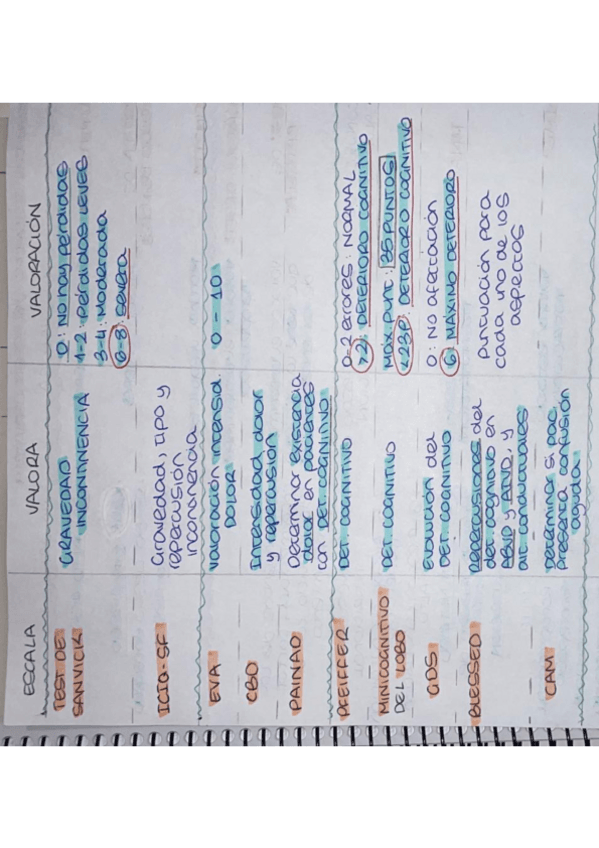 ESCALA VALORA VALORACIÓN
TEST DE
SANVICK
GRAVEDAD
INCONTINENCIA
0: No hay pérdidas
1-2: Pérdidas LEVES
3-4: Moderada
6-8: Severa
ICIQ-SF
Gravedad, tipo y
repercusión
incontinencia
EVA
Valoración intensid.
DOLOR
0 - 10
CBD
Intensidad dolor
y repercusión
PAINAD
Determinar existencia
dolor en pacientes
con DET. COGNITIVO
PFEIFFER
DET. COGNITIVO
0-2 errores: NORMAL
>2: DETERIORO COGNITIVO
MINICOGNITIVO
DEL LOBO
DET. COGNITIVO
MÁX. PUNT: 35 PUNTOS
<23P: DETERIORO COGNITIVO
GDS
Evolución del
DET. COGNITIVO
0: No afectación
6: MÁXIMO DETERIORO
BLESSED
Repercusiones del
det. cognitivo en
ABVD y AIVD, y
alt. conductuales
Puntuación para
cada uno de los
aspectos
CAM
Determina si pac.
presenta confusión
aguda